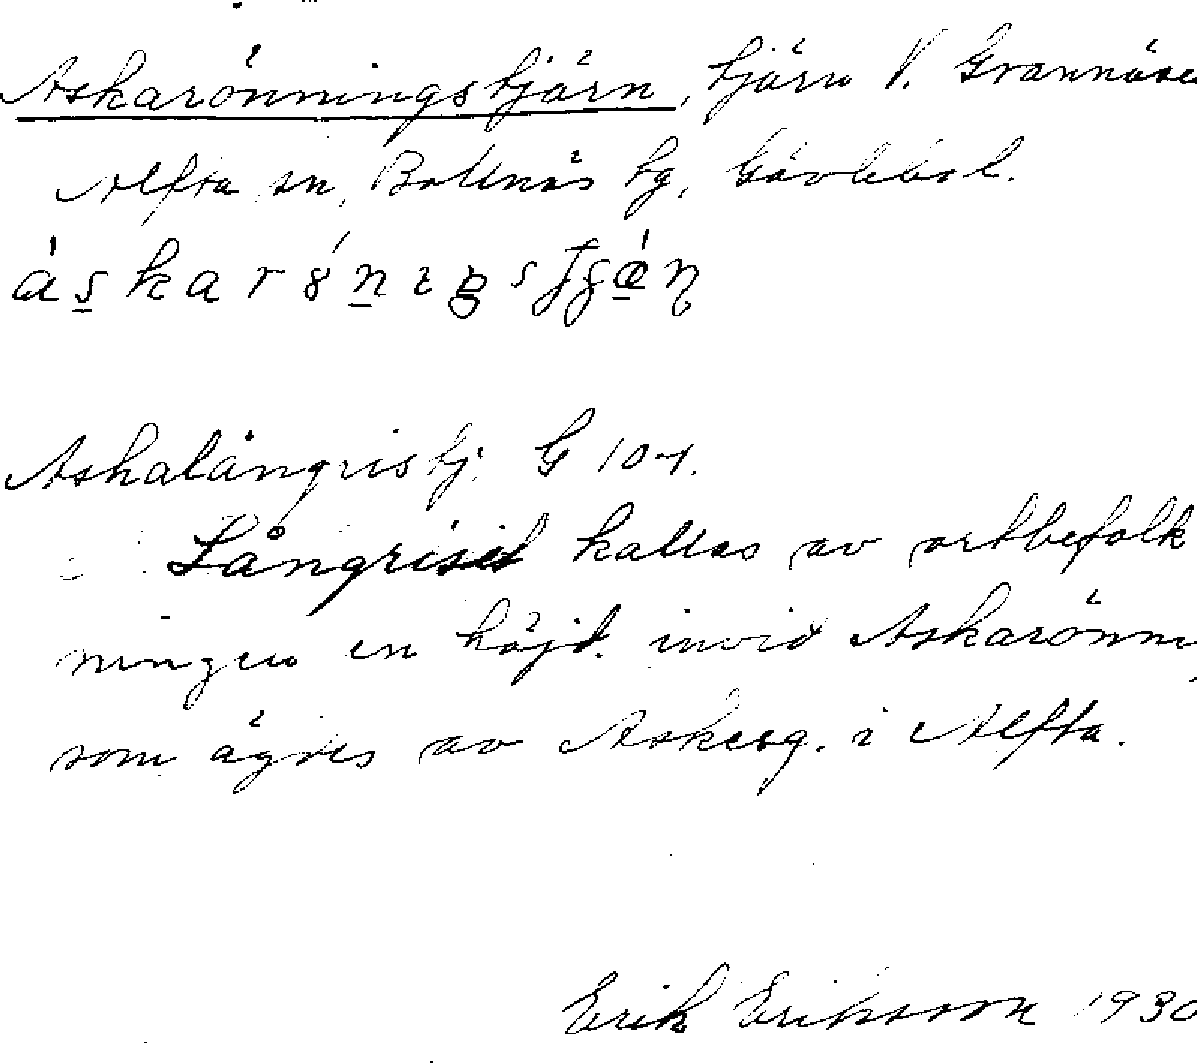 Askarönningstjärn, tjärn V. Grannäsen
Alfta sn, Bollnäs tg, Gävlebol.
áskarönıŋstjǽn
Askalångristj. G 104.
Långriset kallas av ortbefolk
ningen en höjd. invid Askarönni
som ägdes av Askesg. i Alfta.
Erik Eriksson 1930